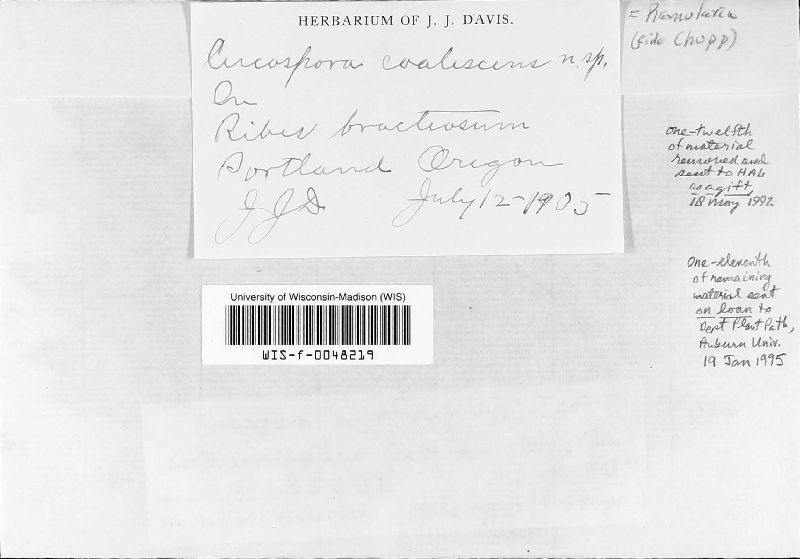 HERBARIUM OF J. J. DAVIS.
Cercospora coalescens n. sp.
On
Ribes bracteosum
Portland Oregon
JJD July 12-1905
= Ramularia
(fide Chupp)
one-twelfth
of material
removed and
sent to HAL
as a gift,
18 May 1992
One-eleventh
of remaining
material sent
on loan to
Dept Plant Path,
Auburn Univ.
19 Jan 1995
University of Wisconsin-Madison (WIS)
WIS-f-0048219